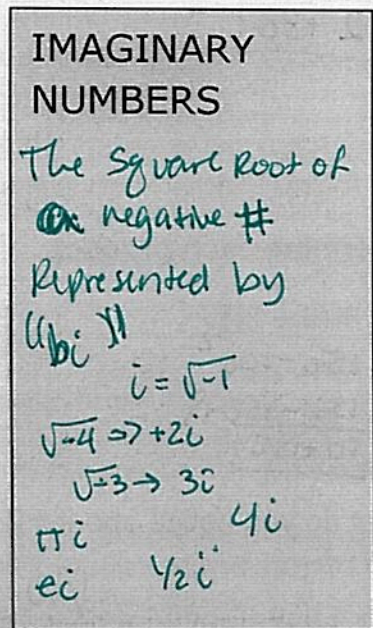 IMAGINARY
NUMBERS
The Square Root of
a negative #
Represented by
"bi"
i = √-1
√-4 => +2i
√-3 → 3i
πi 4i
ei 1/2 i